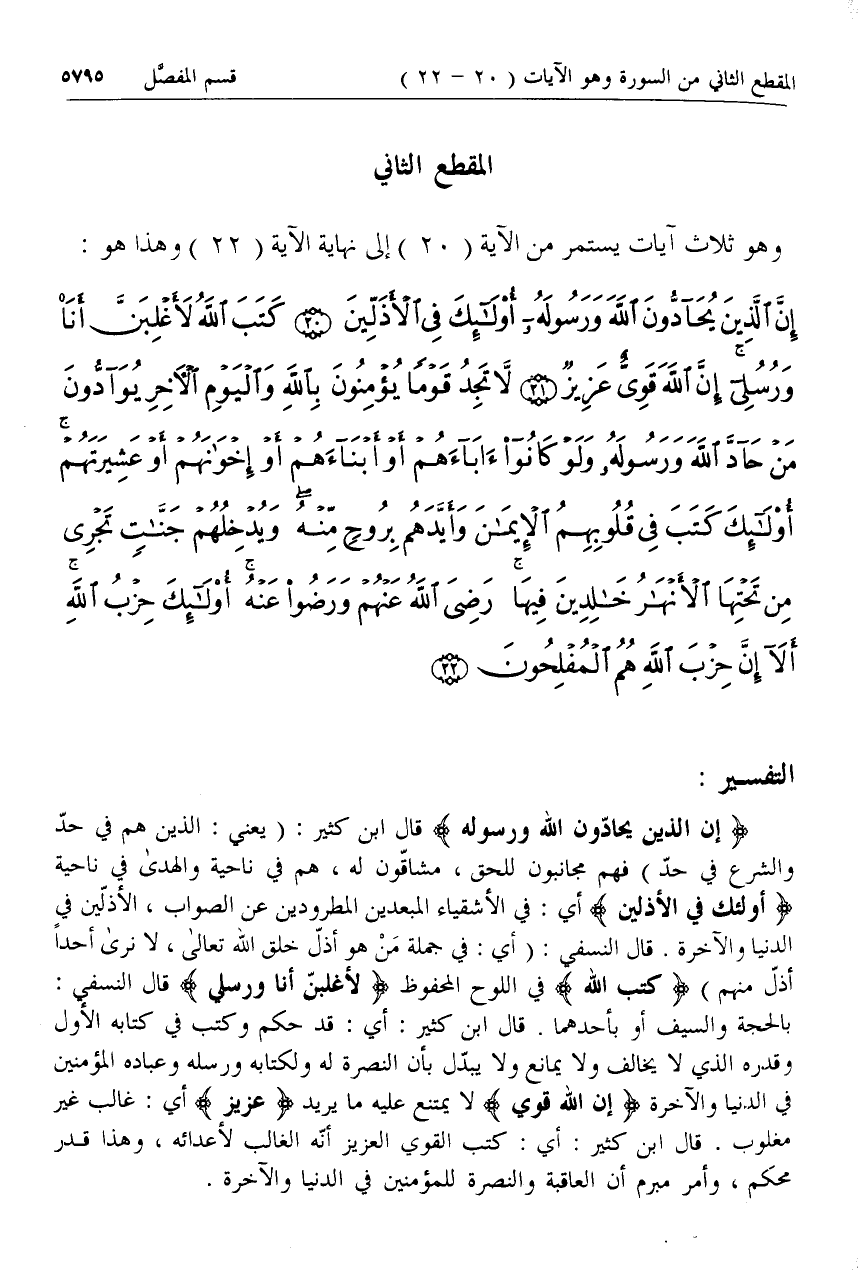 المقطع الثاني من السورة وهو الآيات ( ٢٠ – ٢٢ ) قسم المفصَّل ٥٧٩٥
المقطع الثاني
وهو ثلاث آيات يستمر من الآية ( ٢٠ ) إلى نهاية الآية ( ٢٢ ) وهذا هو :
إِنَّ ٱلَّذِينَ يُحَآدُّونَ ٱللَّهَ وَرَسُولَهُۥٓ أُو۟لَٰٓئِكَ فِى ٱلْأَذَلِّينَ ۝٢٠ كَتَبَ ٱللَّهُ لَأَغْلِبَنَّ أَنَا۠
وَرُسُلِىٓ ۚ إِنَّ ٱللَّهَ قَوِىٌّ عَزِيزٌ ۝٢١ لَّا تَجِدُ قَوْمًا يُؤْمِنُونَ بِٱللَّهِ وَٱلْيَوْمِ ٱلْـَٔاخِرِ يُوَآدُّونَ
مَنْ حَآدَّ ٱللَّهَ وَرَسُولَهُۥ وَلَوْ كَانُوٓا۟ ءَابَآءَهُمْ أَوْ أَبْنَآءَهُمْ أَوْ إِخْوَٰنَهُمْ أَوْ عَشِيرَتَهُمْ ۚ
أُو۟لَٰٓئِكَ كَتَبَ فِى قُلُوبِهِمُ ٱلْإِيمَٰنَ وَأَيَّدَهُم بِرُوحٍ مِّنْهُ ۖ وَيُدْخِلُهُمْ جَنَّٰتٍ تَجْرِى
مِن تَحْتِهَا ٱلْأَنْهَٰرُ خَٰلِدِينَ فِيهَا ۚ رَضِىَ ٱللَّهُ عَنْهُمْ وَرَضُوا۟ عَنْهُ ۚ أُو۟لَٰٓئِكَ حِزْبُ ٱللَّهِ ۚ
أَلَآ إِنَّ حِزْبَ ٱللَّهِ هُمُ ٱلْمُفْلِحُونَ ۝٢٢
التفسير :
﴿ إن الذين يحادّون الله ورسوله ﴾ قال ابن كثير : ( يعني : الذين هم في حدّ
والشرع في حدّ ) فهم مجانبون للحق ، مشاقّون له ، هم في ناحية والهدىٰ في ناحية
﴿ أولئك في الأذلين ﴾ أي : في الأشقياء المبعدين المطرودين عن الصواب ، الأذلّين في
الدنيا والآخرة . قال النسفي : ( أي : في جملة مَنْ هو أذلّ خلق الله تعالىٰ ، لا نرىٰ أحداً
أذلّ منهم ) ﴿ كتب الله ﴾ في اللوح المحفوظ ﴿ لأغلبنّ أنا ورسلي ﴾ قال النسفي :
بالحجة والسيف أو بأحدهما . قال ابن كثير : أي : قد حكم وكتب في كتابه الأول
وقدره الذي لا يخالف ولا يمانع ولا يبدّل بأن النصرة له ولكتابه ورسله وعباده المؤمنين
في الدنيا والآخرة ﴿ إن الله قوي ﴾ لا يمتنع عليه ما يريد ﴿ عزيز ﴾ أي : غالب غير
مغلوب . قال ابن كثير : أي : كتب القوي العزيز أنّه الغالب لأعدائه ، وهذا قـدر
محكم ، وأمر مبرم أن العاقبة والنصرة للمؤمنين في الدنيا والآخرة .